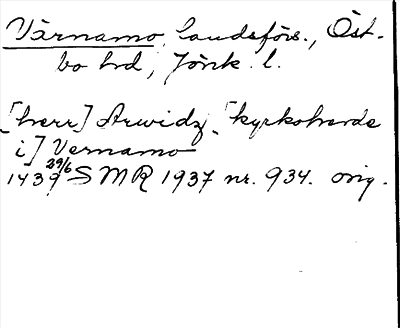 Värnamo, landsförs., Öst-
bo hd, Jönk. l.
[herr] Arwidz [kyrkoherde
i] Vernamo
1439 29/6 SMR 1937 nr. 934. orig.